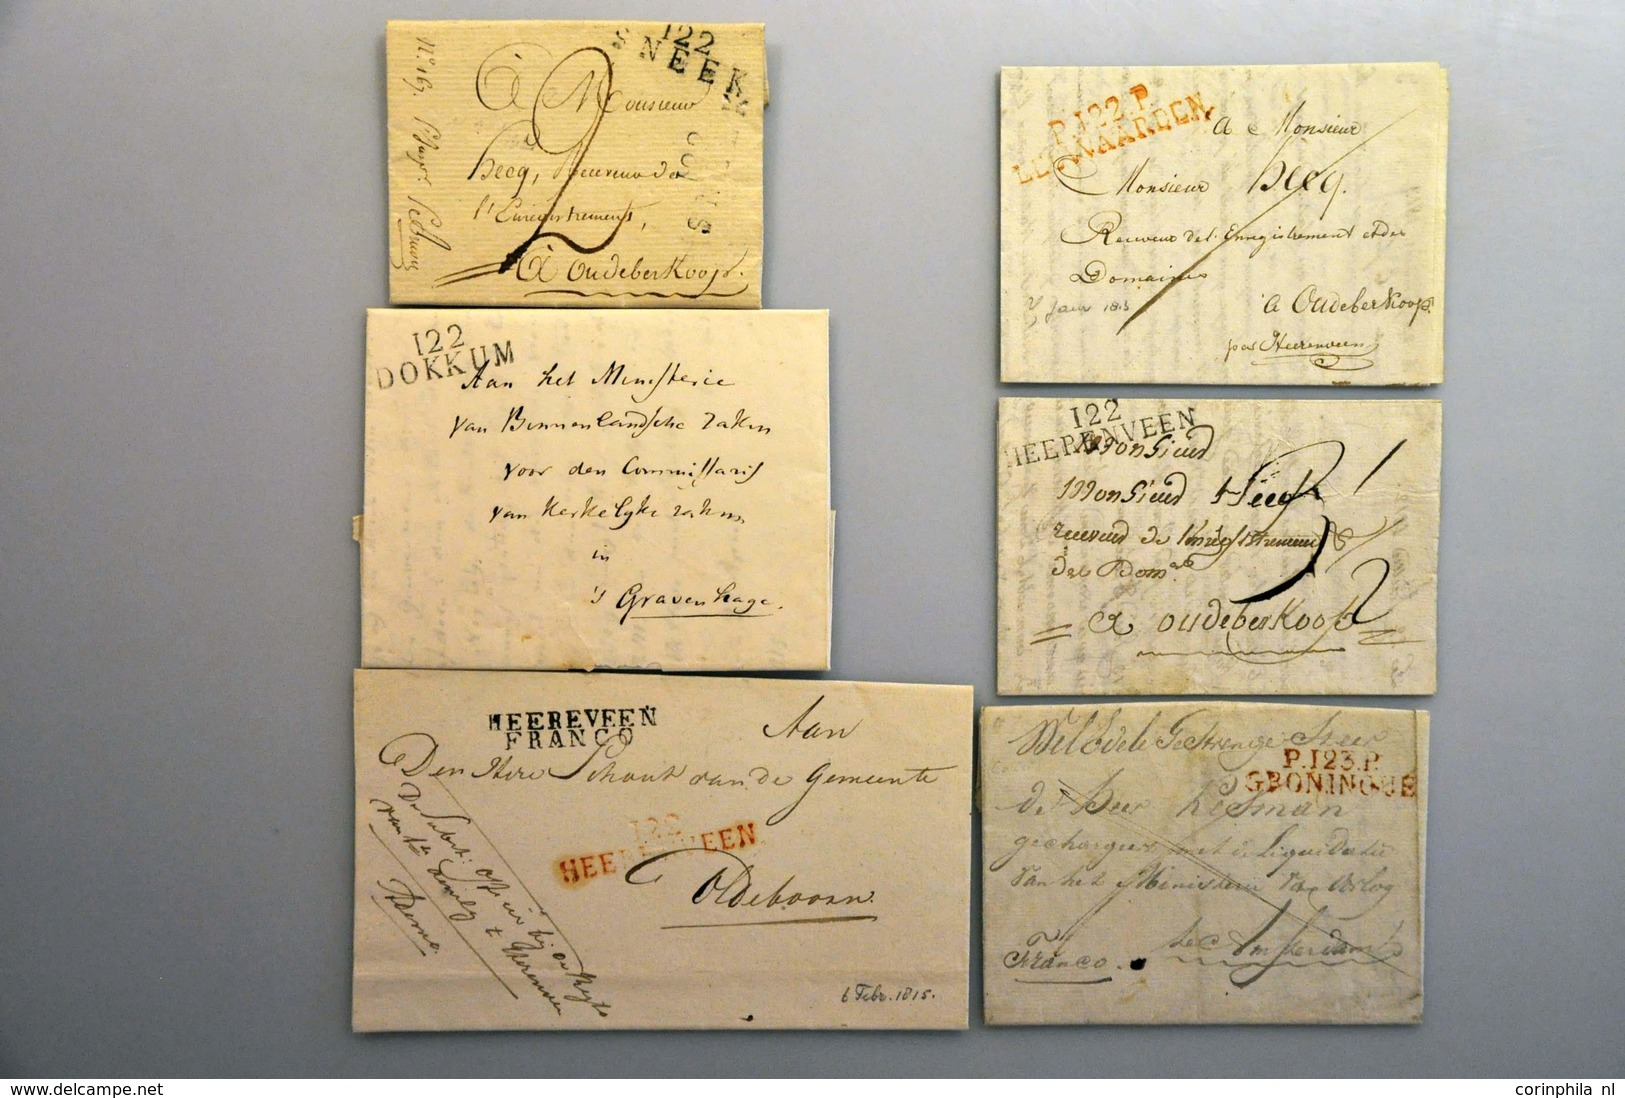 122
SNEEK
à Monsieur
Heeq, Receveur de
l'Enregistrement,
à Oudeberkoop.
122
DOKKUM
Aan het Ministerie
van Binnenlandsche zaken
voor den Commissaris
van Kerkelyke zaken
in
's Gravenhage.
HEEREVEEN
FRANCO
Aan
Den Here Schout van de Gemeente
122
HEERENVEEN
Oldeboorn.
6 Febr. 1815.
P.122.P.
LEEUWAARDEN
a Monsieur
Monsieur Heeq.
Receveur de l'Enregistrement et des
Domaines
a Oudeberkoop.
par Heerenveen
Janr 1813
122
HEERENVEEN
Monsieur
Monsieur Heeq
receveur de l'enregistrement &
des Dom.
a oudeberkoop
Wel Edele Gestrenge Heer
P.123.P.
GRONINGUE
de Heer
gechargeer met de Liquidatie
van het Ministerie van Oorlog
te Amsterdam
Franco.
corinphila nl